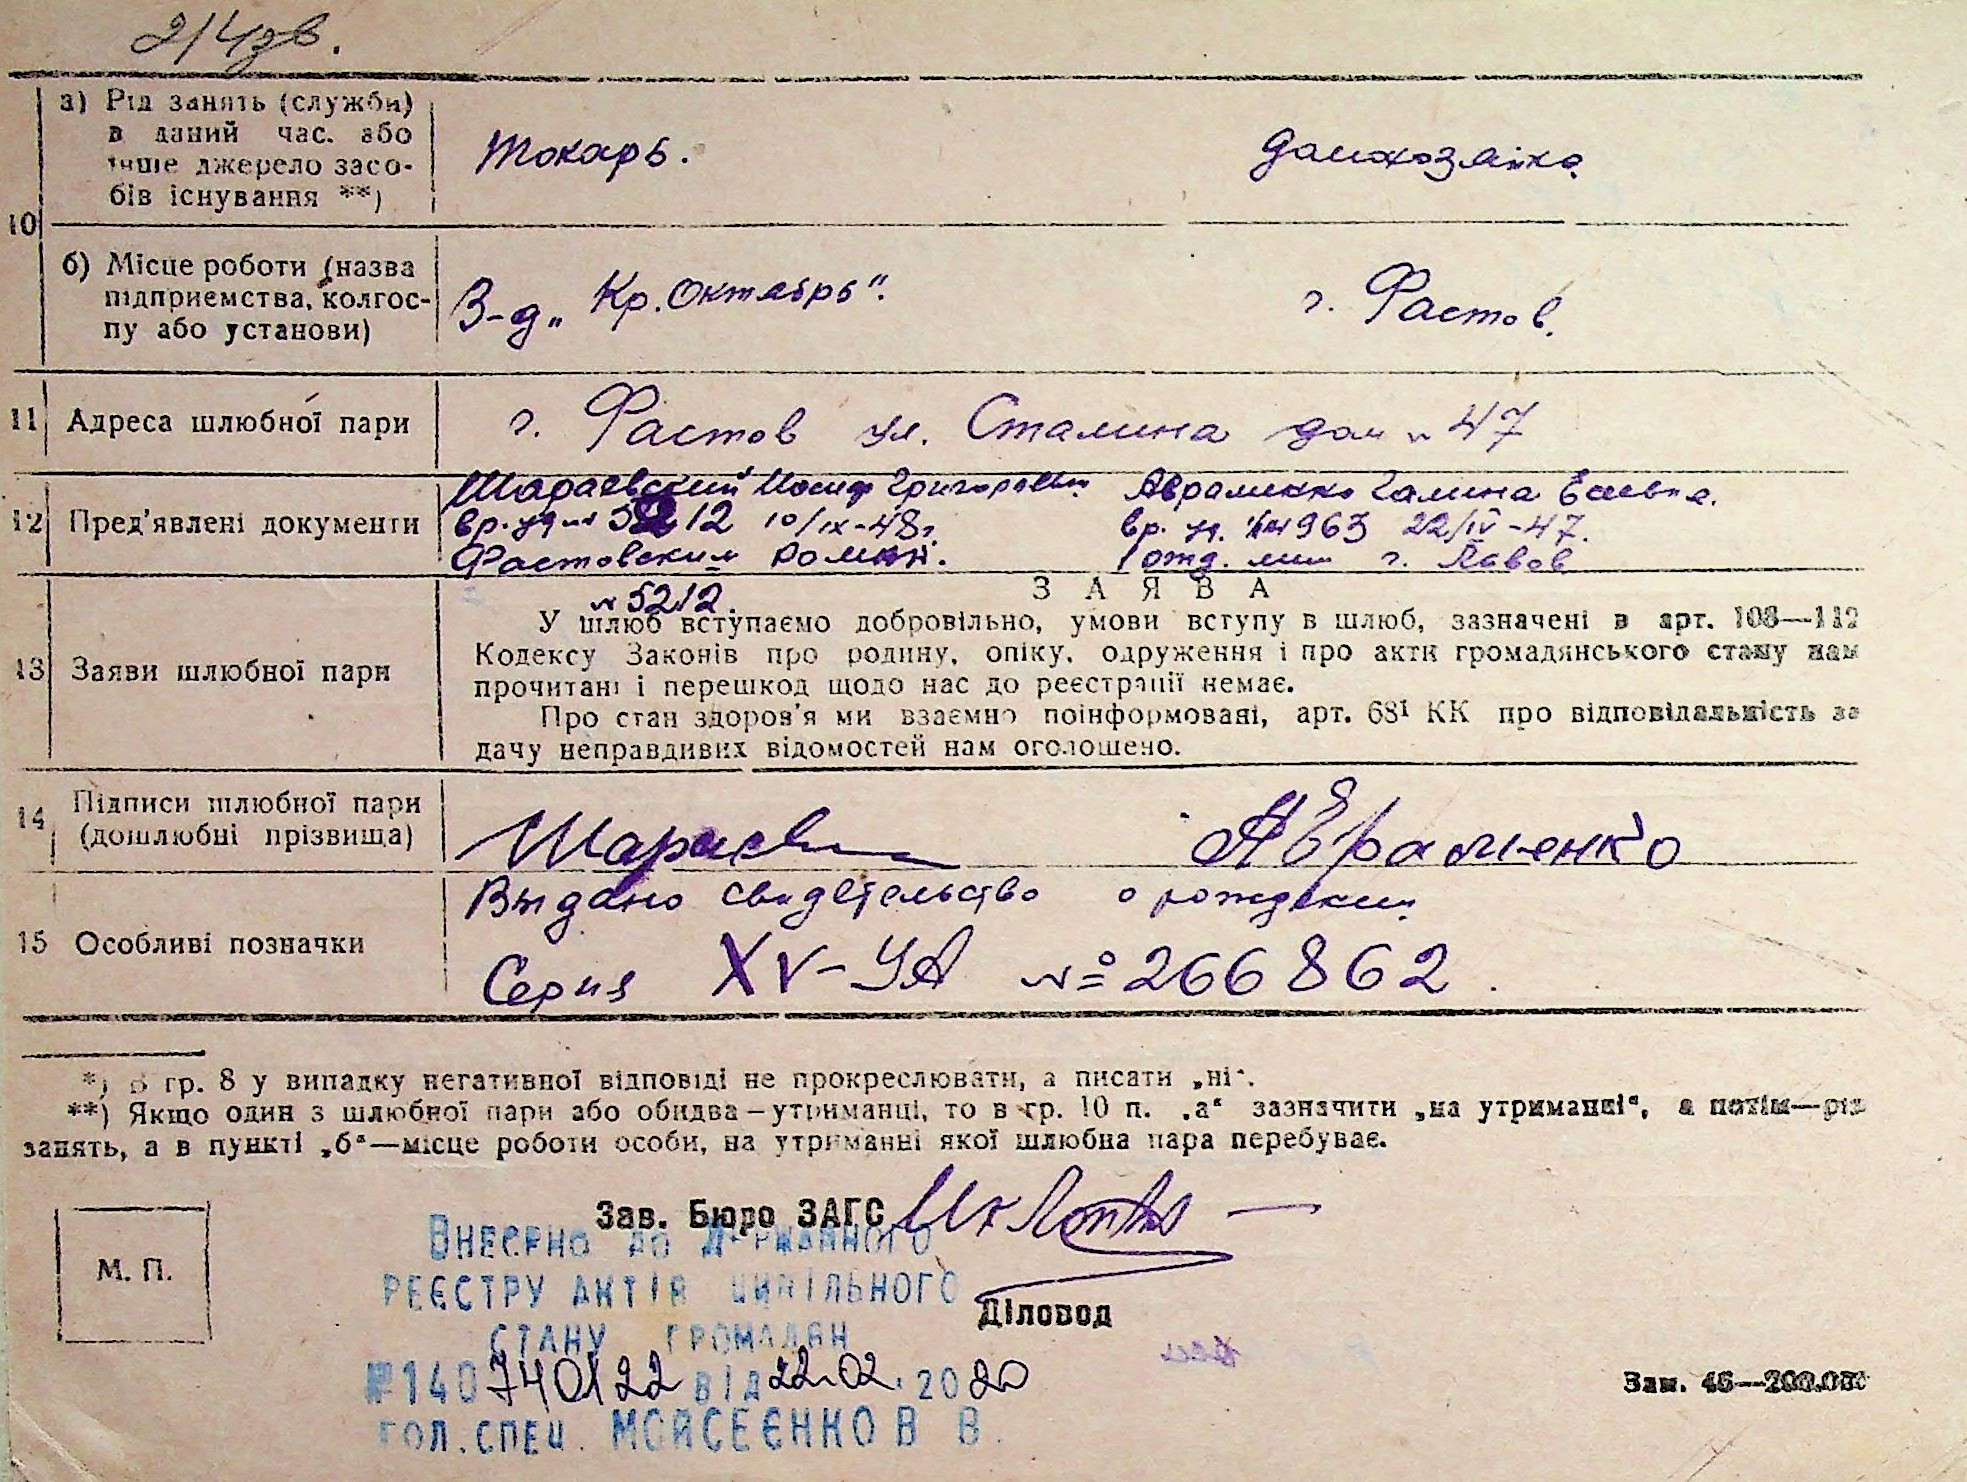 214зв.
а) Рід занять (служби)
в даний час. або
інше джерело засо-
бів існування **)
Токарь.
домохозяйка
10
б) Місце роботи (назва
підприємства, колгос-
пу або установи)
З-д „Кр. Октябрь".
г. Фастов.
11 Адреса шлюбної пари
г. Фастов ул. Сталина дом № 47
12 Пред'явлені документи
Шараевский Иосиф Григорьевич
вр. уд-ие 5212 10/IX-48г.
Фастовским
№ 5212.
Авраменко Галина
вр. уд. 963 22/IV-47.
1 отд. мил. г. Львов
13 Заяви шлюбної пари
ЗАЯВА
У шлюб вступаємо добровільно, умови вступу в шлюб, зазначені в арт. 108—112
Кодексу Законів про родину, опіку, одруження і про акти громадянського стану нам
прочитані і перешкод щодо нас до реєстрації немає.
Про стан здоров'я ми взаємно поінформовані, арт. 68¹ КК про відповідальність за
дачу неправдивих відомостей нам оголошено.
14 Підписи шлюбної пари
(дошлюбні прізвища)
Авраменко
15 Особливі позначки
Выдано свидетельство о рождении
Серия XV-УА № 266862.
*) В гр. 8 у випадку негативної відповіді не прокреслювати, а писати „ні".
**) Якщо один з шлюбної пари або обидва—утриманці, то в гр. 10 п. „а" зазначити „на утриманні", а потім—рід
занять, а в пункті „б"—місце роботи особи, на утриманні якої шлюбна пара перебуває.
М. П.
Зав. Бюро ЗАГС
Діловод
Внесено до Державного
реєстру актів цивільного
стану громадян
№ 140740122 від 22.02.2020
гол. спец. Мойсеєнко В В.
Зам. 46—200.000